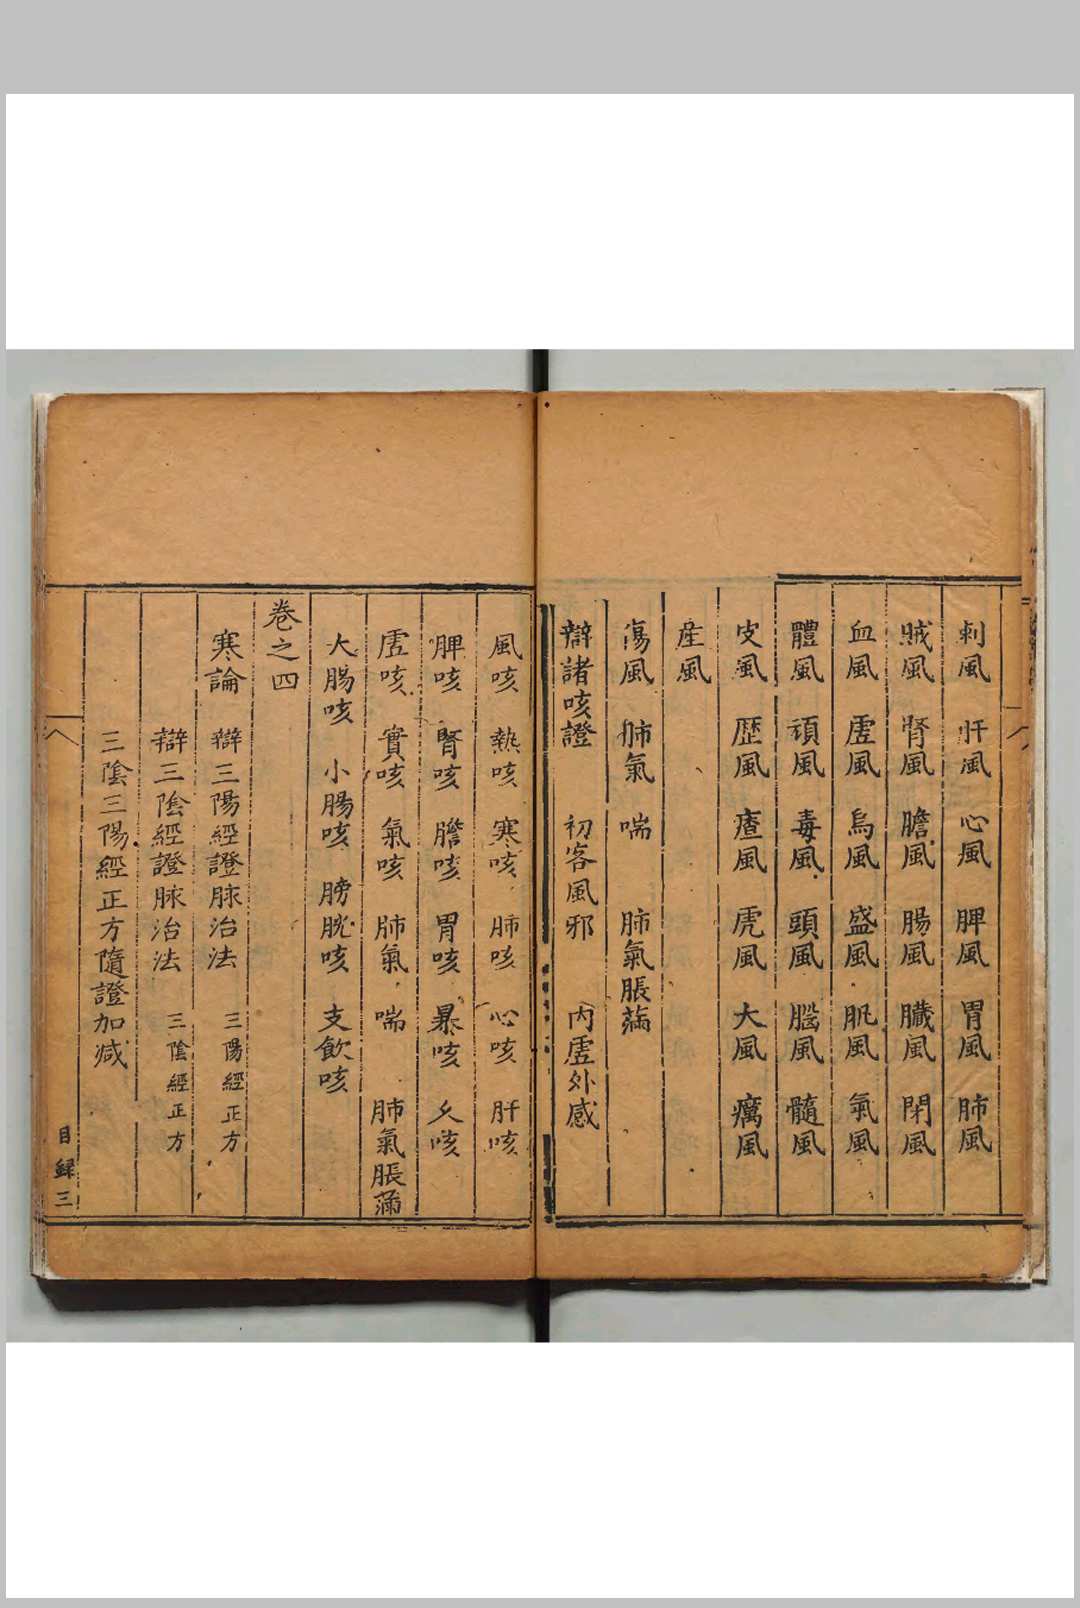 刺風 肝風 心風 脾風 胃風 肺風
賊風 腎風 膽風 腸風 臓風 閉風
血風 虗風 烏風 盛風 肌風 氣風
體風 頑風 毒風 頭風 腦風 髓風
皮風 歴風 㾴風 虎風 大風 癘風
産風
傷風 肺氣 喘 肺氣脹滿
辯諸咳證 初客風邪 内虗外感
風咳 熱咳 寒咳 肺咳 心咳 肝咳
脾咳 腎咳 膽咳 胃咳 暴咳 久咳
虗咳 實咳 氣咳 肺氣 喘 肺氣脹滿
大腸咳 小腸咳 膀胱咳 支飲咳
卷之四
寒論 辯三陽經證脉治法 三陽經正方
辯三陰經證脉治法 三陰經正方
三陰三陽經正方隨證加减
目録三